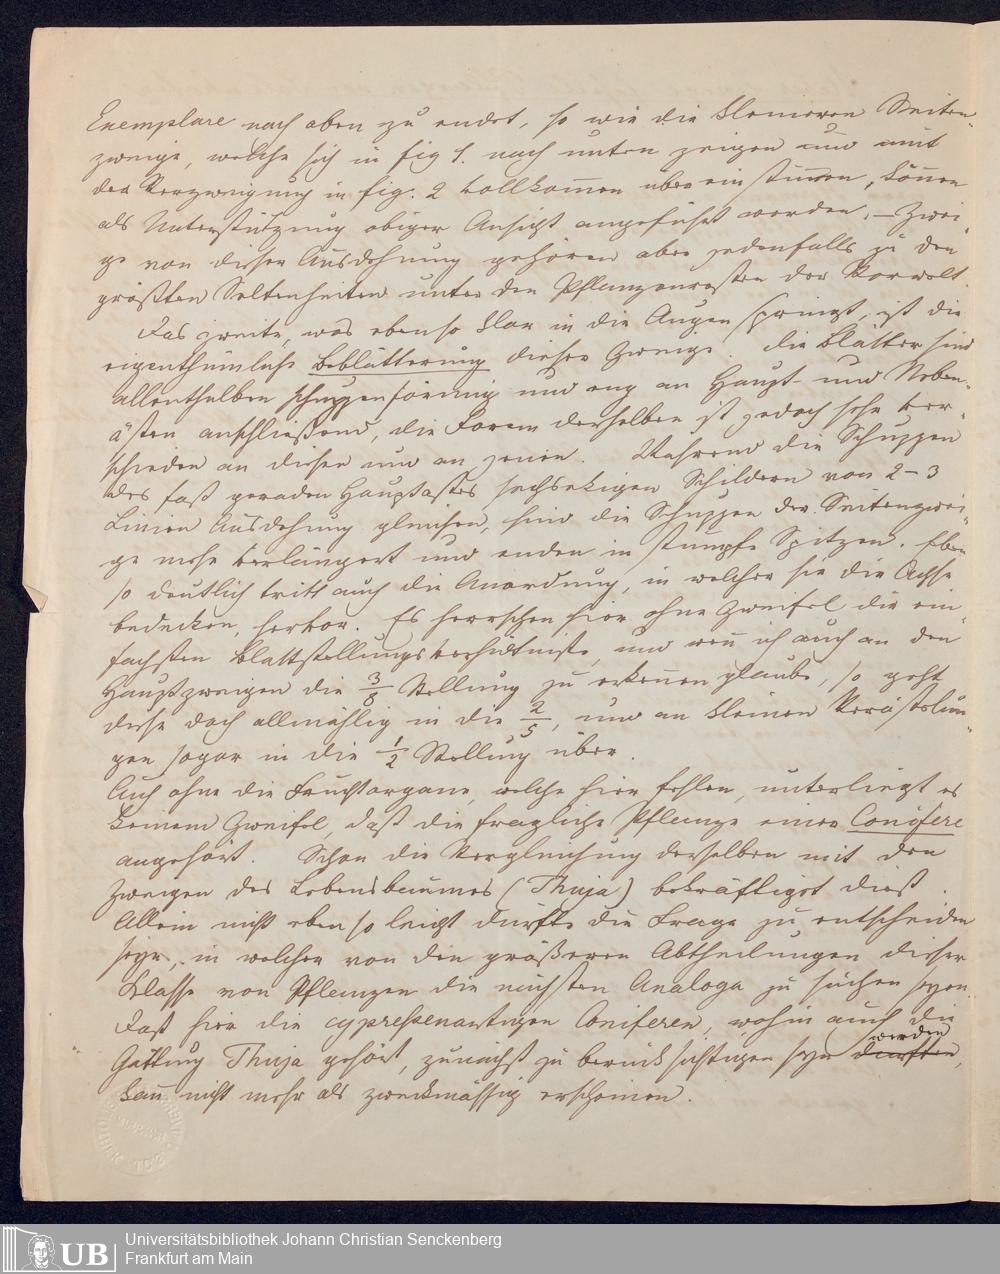 Exemplare nach oben zu endet, so wie die kleineren Seiten-
zweige, welche sich in fig 1. nach unten zeigen und mit
der Verzweigung in fig. 2 vollkom̅en übereinstim̅en, kön̅en
als Unterstützung obiger Ansicht angeführt werden. — Zwei-
ge von dieser Ausdehnung gehören aber jedenfalls zu den
größten Seltenheiten unter den Pflanzenresten der Vorwelt.
Das zweite, was eben so klar in die Augen springt, ist die
eigenthümliche Beblätterung dieser Zweige. Die Blätter sind
allenthalben schuppenförmig und eng an Haupt- und Neben-
ästen anschließend, die Form derselben ist jedoch sehr ver-
schieden an diesen und an jenen. Während die Schuppen
des fast geraden Hauptastes sechsekigen Schildern von 2-3
Linien Ausdehnung gleichen, sind die Schuppen der Seitenzwei-
ge mehr verlängert und enden in stumpfe Spitzen. Eben
so deutlich tritt auch die Anordnung, in welcher sie die Achse
bedecken, hervor. Es herrschen hier ohne Zweifel die ein-
fachsten Blattstellungsverhältniße, und wen̅ ich auch an den
Hauptzweigen die 3/8 Stellung zu erken̅en glaube, so geht
diese doch allmählig in die 2/5, und an kleinen Verästelun-
gen sogar in die 1/2 Stellung über.
Auch ohne die Fruchtorgane, welche hier fehlen, unterliegt es
keinem Zweifel, daß die fragliche Pflanze einer Conifere
angehört. Schon die Vergleichung derselben mit den
Zweigen des Lebensbaumes (Thuja) bekräftiget dieß.
Allein nicht eben so leicht dürfte die Frage zu entscheiden
seyn, in welcher von den größeren Abtheilungen dieser
Klasse von Pflanzen die nächsten Analoga zu suchen seyen.
Daß hier die cypreßenartigen Coniferen, wohin auch die
Gattung Thuja gehört, zunächst zu berücksichtigen seyn dürften werden,
kan̅ nicht mehr als zweckmässig erscheinen.
Universitätsbibliothek Johann Christian Senckenberg
Frankfurt am Main
UB